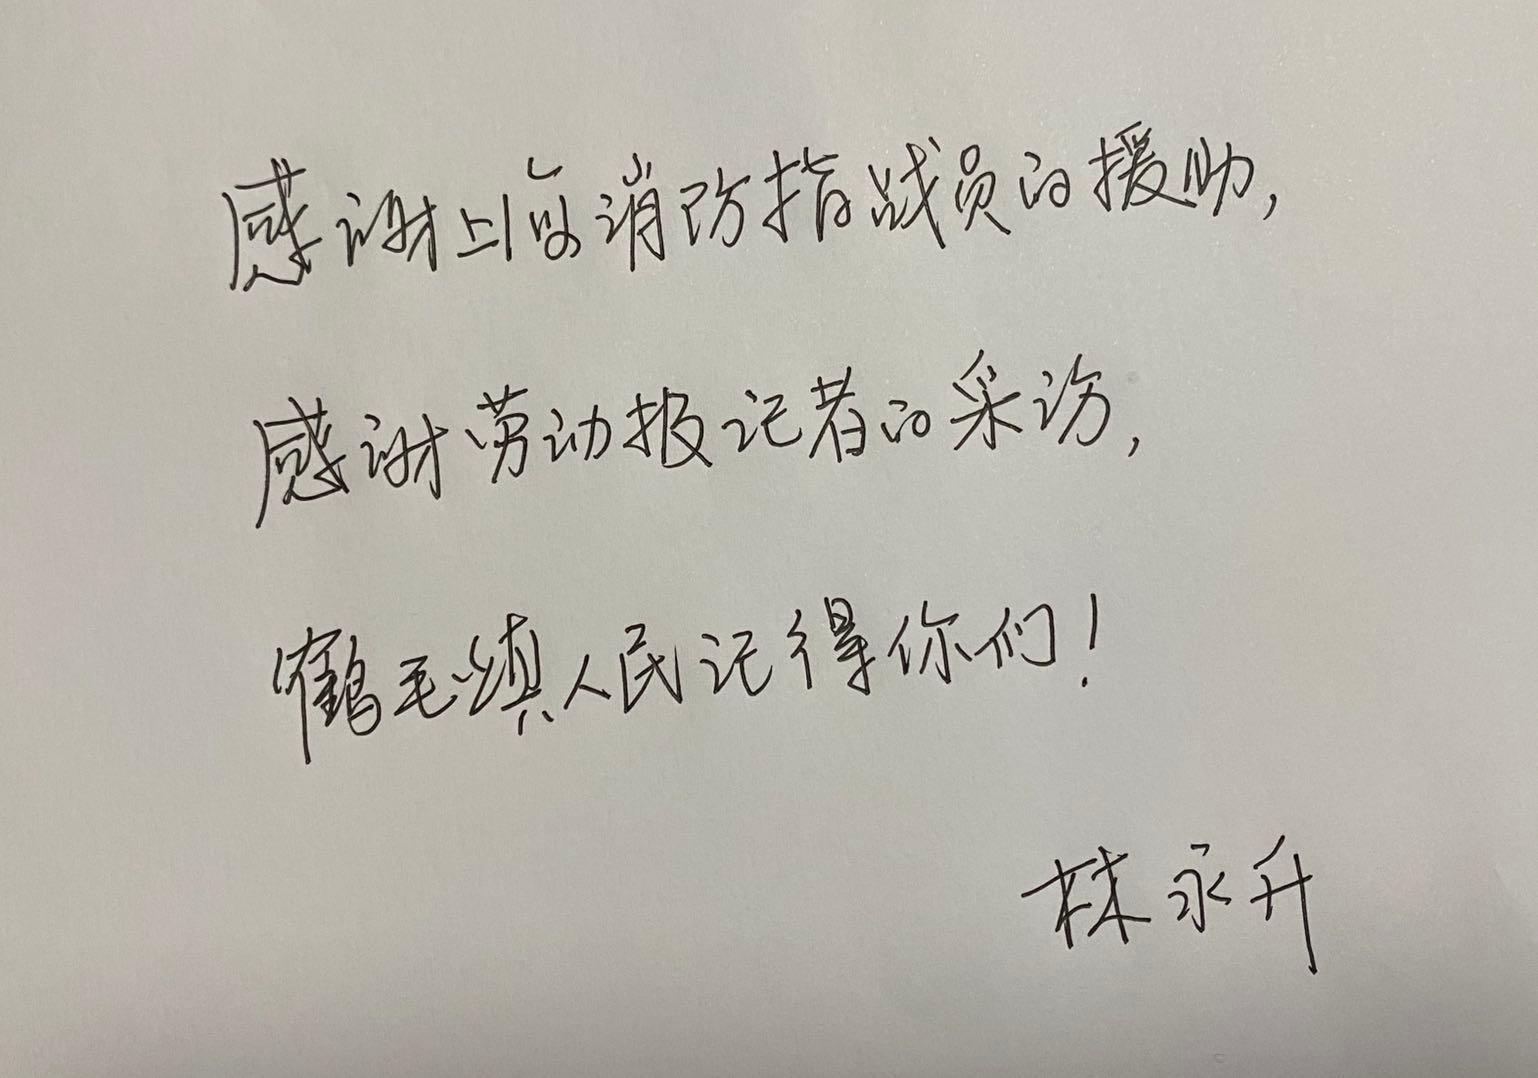 感谢上海消防指战员的援助，
感谢劳动报记者的采访，
鹤毛镇人民记得你们！
林永升